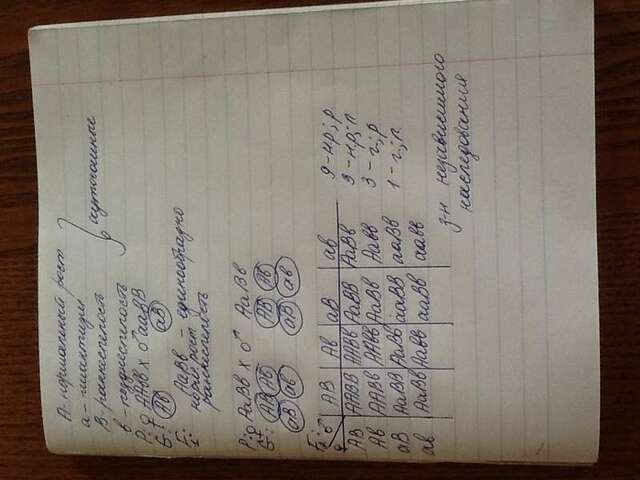 А - нормальный рост
а - гигантизм
В - раннеспелость
в - позднеспелость
аутосомные
P: ♀ ААвв х ♂ ааВВ
G: Ав аВ
F1: АаВв - единообразно
норм рост
раннеспелость
P: ♀ АаВв х ♂ АаВв
G: АВ Ав АВ Ав
аВ ав аВ ав
F2:
♀ ♂ АВ Ав аВ ав
АВ ААВВ ААВв АаВВ АаВв
Ав ААВв ААвв АаВв Аавв
аВ АаВВ АаВв ааВВ ааВв
ав АаВв Аавв ааВв аавв
9 - н.р.; р.
3 - н.р.; п
3 - г.; р
1 - г.; п.
з-н независимого
наследования